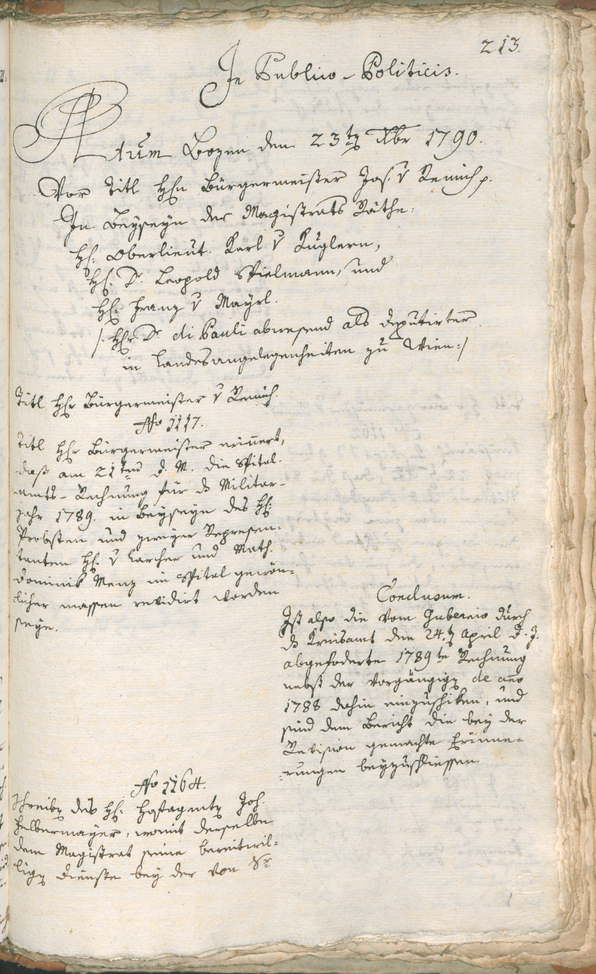 213.
In Publico-Politicis.
Actum Bozen den 23tn Xbr 1790.
Vor Titl Hhn Bürgermeister Jos. v Remich p.
In Beyseyn der Magistrats Räthe.
Hh. Oberlieut. Karl v Kuglern,
Hh. Dr. Leopold Spielmann, und
Hh. Franz v Mayrl.
/: Hhr Dr di Pauli abwesend als deputirter
in Landesangelegenheiten zu Wien :/
Titl Hhr Bürgermeister v Remich.
No 1117.
Titl Hhr Bürgermeister erinnert,
daß am 21ten d. M. die Spital-
amts-Rechnung für ds Militar-
jahr 1789. in Beyseyn des Hh.
Probsten und zweyer Represen-
tanten Hh. v Larcher und Math.
Dominik Menz im Spital gewön-
licher massen revidirt worden
seye.
Conclusum.
Ist also die vom Gubernio durch
ds Kreisamt den 24.tn April d. J.
abgefoderte 1789te Rechnung
nebst der vorgängign de año
1788 dahin einzuschiken, und
sind dem Bericht die bey der
Revision gemachte Erinne-
rungen beyzuschliessen
No 1164.
Schreibn des Hh. Hofagentn Joh.
Halbermayer, womit derselbe
dem Magistrat seine bereitwil-
lign Dienste bey der von Sr